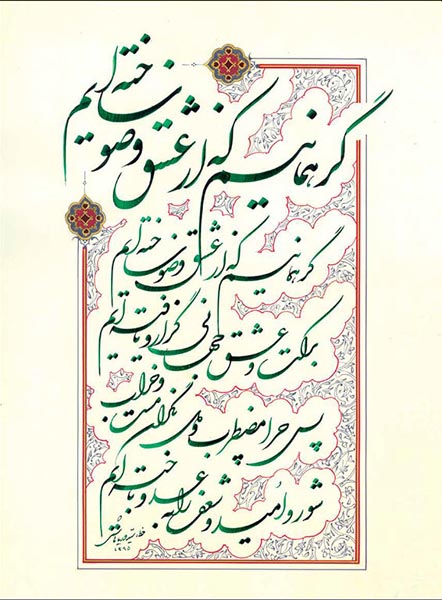 گر همانیم که از عشق وضو ساخته‌ایم
گر همانیم که از عشق وضو ساخته‌ایم
برکت و عشق جهانی گرو یافته‌ایم
پس چرا مضطرب و نگران مست و خراب
شور و امید و شعف را به عدو باخته‌ایم
۱۳۹۵